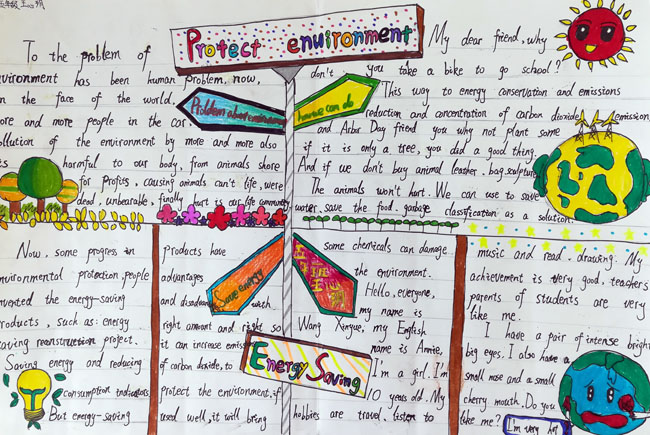 Protect environment
To the problem of
environment has been human problem, now,
in the face of the world.
more and more people in the car.
pollution of the environment by more and more also
its harmful to our body, from animals shore
for profits, causing animals can't life, were
dead, unbearable, finally hurt is our life community
Problem about environment
how we can do
My dear friend, why
don't you take a bike to go school?
This way to energy conservation and emissions
reduction and concentration of carbon dioxide emission,
and Arbor Day friend you why not plant some
if it is only a tree, you did a good thing.
And if we don't buy animal leather. bag. sculpture
The animals won't hurt. We can use to save
water, save the food. garbage classification as a solution.
Now, some progress in
environmental protection, people
invented the energy-saving
products, such as: energy
saving reconstruction project.
Saving energy and reducing
consumption indicators.
But energy-saving
products have
advantages
and disadvantages with
right amount and right so
it can increase emission
of carbon dioxide, to
protect the environment, if
used well, it will bring
Save energy
Energy Saving
some chemicals can damage
the environment.
Hello, everyone,
my name is
Wang Xinyue, my English
name is Annie,
I'm a girl. I'm
10 years old. My
hobbies are travel, listen to
music and read. drawing. My
achievement is very good, teachers
parents of students are very
like me.
I have a pair of intense bright
big eyes. I also have a
small nose and a small
cherry mouth. Do you
like me?
I'm very hot